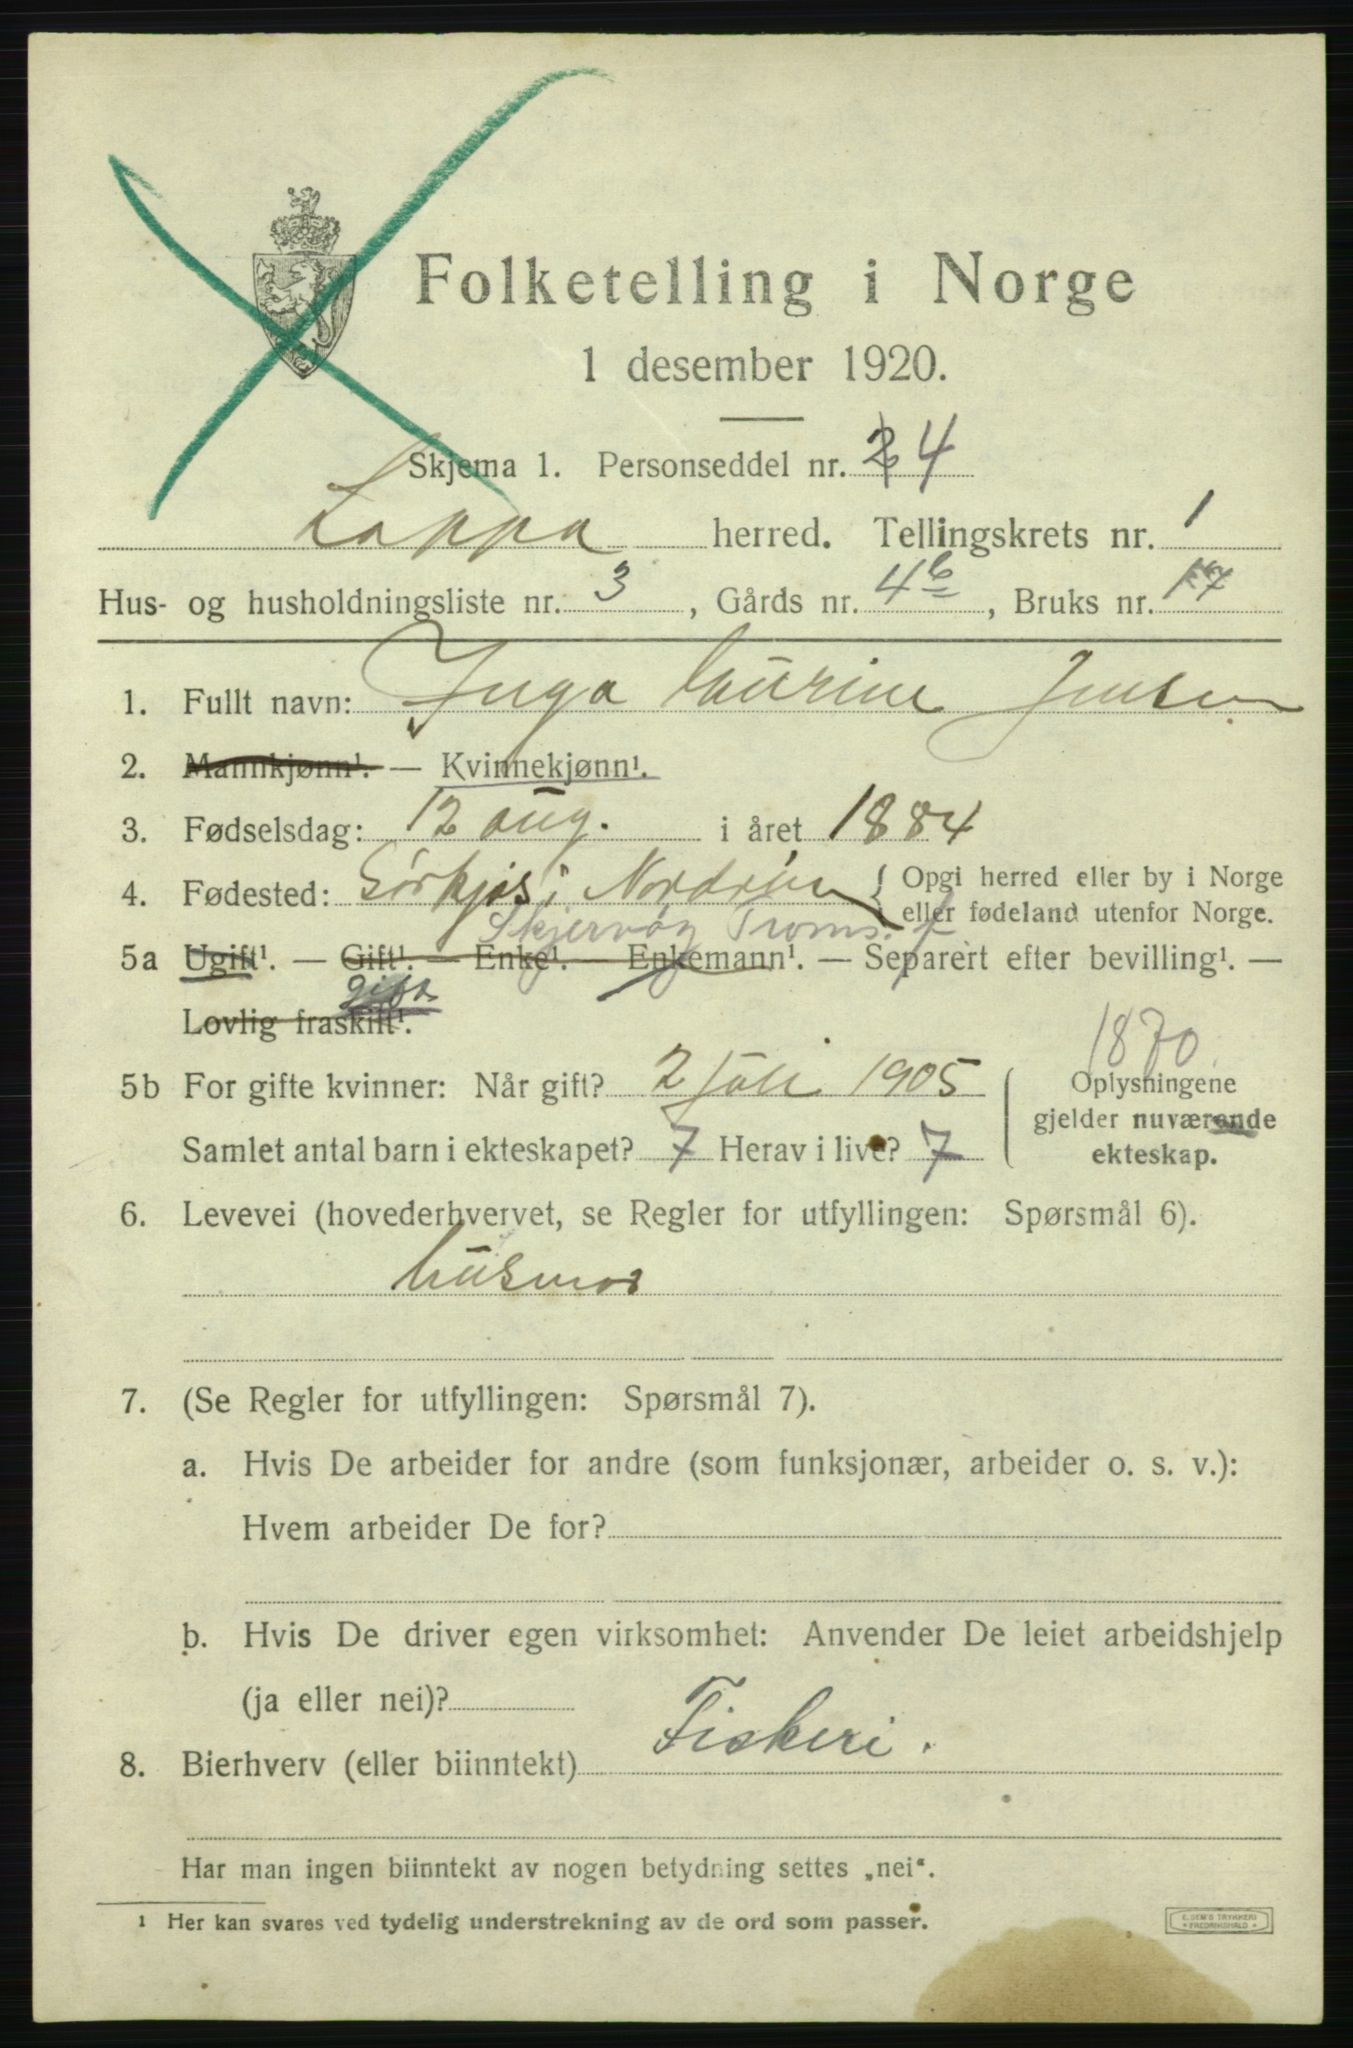 Folketelling i Norge
1 desember 1920.
Skjema 1. Personseddel nr. 2 4
Loppa herred. Tellingskrets nr. 1
Hus- og husholdningsliste nr. 3, Gårds nr. 4b, Bruks nr. 17
1. Fullt navn: Inga Laurine Jensen
2. Mannkjønn¹. — Kvinnekjønn¹.
3. Fødselsdag: 12 aug. i året 1884
4. Fødested: Sörkjos i { Opgi herred eller by i Norge
eller fødeland utenfor Norge.
Skjervöy Troms. f
5a Ugift¹. — Gift¹. — Enke¹. — Enkemann¹. — Separert efter bevilling¹. —
gift
Lovlig fraskilt¹.
1870
5b For gifte kvinner: Når gift? 2 juli 1905 Oplysningene
gjelder nuværende
Samlet antal barn i ekteskapet? 7 Herav i live? 7 ekteskap.
6. Levevei (hovederhvervet, se Regler for utfyllingen: Spørsmål 6).
husmor
7. (Se Regler for utfyllingen: Spørsmål 7).
a. Hvis De arbeider for andre (som funksjonær, arbeider o. s. v.):
Hvem arbeider De for?
b. Hvis De driver egen virksomhet: Anvender De leiet arbeidshjelp
(ja eller nei)?
8. Bierhverv (eller biinntekt) Fiskeri.
Har man ingen biinntekt av nogen betydning settes „nei“.
¹ Her kan svares ved tydelig understrekning av de ord som passer.
E. SEM'S TRYKKERI
FREDRIKSHALD